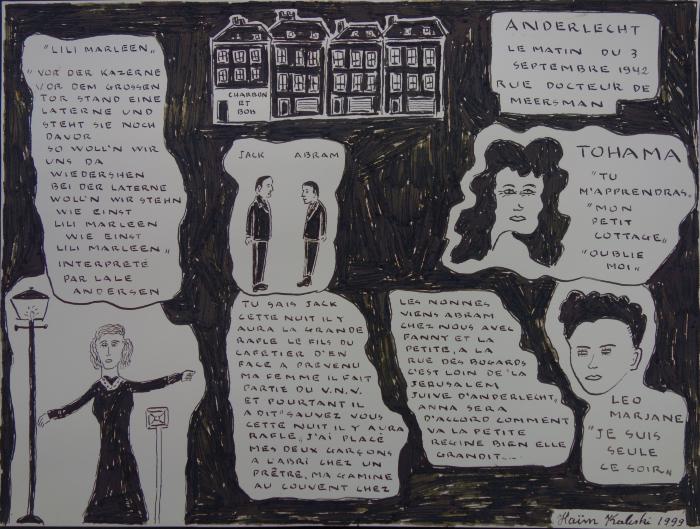 "LILI MARLEEN"
"VOR DER KAZERNE
VOR DEM GROSSEN
TOR STAND EINE
LATERNE UND
STEHT SIE NOCH
DAVOR
SO WOLL'N WIR
UNS DA
WIEDERSHEN
BEI DER LATERNE
WOLL'N WIR STEHN
WIE EINST
LILI MARLEEN
WIE EINST
LILI MARLEEN"
INTERPRETÉ
PAR LALE
ANDERSEN
CHARBON
ET
BOIS
ANDERLECHT
LE MATIN DU 3
SEPTEMBRE 1942
RUE DOCTEUR DE
MEERSMAN
JACK ABRAM
TOHAMA
"TU
M'APPRENDRAS"
"MON
PETIT
COTTAGE"
"OUBLIE
MOI"
TU SAIS JACK
CETTE NUIT IL Y
AURA LA GRANDE
RAFLE LE FILS DU
CAFETIER D'EN
FACE A PREVENU
MA FEMME IL FAIT
PARTIE DU V.N.V.
ET POURTANT IL
A DIT "SAUVEZ VOUS
CETTE NUIT IL Y AURA
RAFLE" J'AI PLACÉ
MES DEUX GARÇONS
A L'ABRI CHEZ UN
PRÊTRE, MA GAMINE
AU COUVENT CHEZ
LES NONNES
VIENS ABRAM
CHEZ NOUS AVEC
FANNY ET LA
PETITE, A LA
RUE DES BOGARDS
C'EST LOIN DE LA
JERUSALEM
JUIVE D'ANDERLECHT"
ANNA SERA
D'ACCORD COMMENT
VA LA PETITE
REGINE BIEN ELLE
GRANDIT...
LEO
MARJANE
"JE SUIS
SEULE
CE SOIR"
Haïm Kaliski 1992